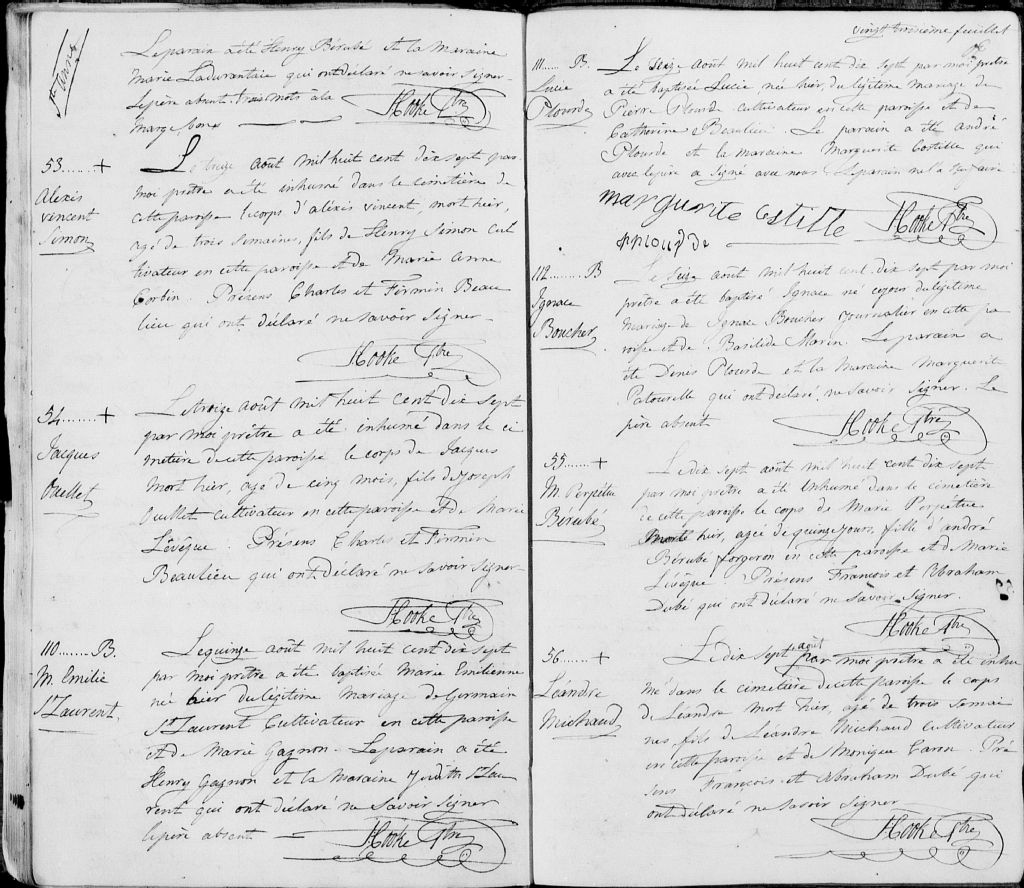 Ste Anne
Le parain a été Henry Bérubé et la maraine
Marie Ladurantaie qui ont déclaré ne savoir signer
Le père absent. trois mots à la
marge bons
Hooke Ptre
53......+
Alexis
vincent
Simon
Le treize août mil huit cent dix sept par
moi prêtre a été inhumé dans le cimetière de
cette paroisse le corps d'alexis vincent, mort hier,
agé de trois semaines, fils de Henry Simon cul
tivateur en cette paroisse et de Marie Anne
Corbin. Présens Charles et Firmin Beau
lieu qui ont déclaré ne savoir signer
Hooke Ptre
54........+
Jacques
Ouellet
Le treize août mil huit cent dix sept
par moi prêtre a été inhumé dans le ci
metière de cette paroisse le corps de Jacques
mort hier, agé de cinq mois, fils de Joseph
Ouellet cultivateur en cette paroisse et de Marie
Lévêque. Présens Charles et Firmin
Beaulieu qui ont déclaré ne savoir signer
Hooke Ptre
110........B.
M. Emilie
St Laurent.
Le quinze août mil huit cent dix sept
par moi prêtre a été baptisé Marie Emilienne
née hier du légitime mariage de Germain
St Laurent Cultivateur en cette paroisse
et de Marie Gagnon. Le parain a été
Henry Gagnon et la maraine Judith St Lau
rent qui ont déclaré ne savoir signer
le père absent
Hooke Ptre
vingt troisième feuillet
111...... B.
Lucie
Plourde
Le seize août mil huit cent dix sept par moi prêtre
a été baptisée Lucie née hier, du légitime mariage de
Pierre Plourde cultivateur en cette paroisse et de
Catherine Beaulieu. Le parain a été andré
Plourde et la maraine Marguerite Costille qui
avec le père a signé avec nous. Le parain ne l'a su faire.
marguerite Costille
Hooke Ptre
pplourde
112.........B
Ignace
Boucher
Le seize août mil huit cent dix sept par moi
prêtre a été baptisé Ignace né ce jour du légitime
mariage de Ignace Boucher journalier en cette pa
roisse et de Basilide Morin. Le parain a
été Denis Plourde et la maraine Marguerite
Patourelle qui ont déclaré ne savoir signer. Le
père absent
Hooke Ptre
55.......+
M. Perpétue
Bérubé
Le dix sept août mil huit cent dix sept
par moi prêtre a été inhumé dans le cimetière
de cette paroisse le corps de Marie Perpétue
Morte hier, agée de quinze jours, fille d'andré
Bérubé forgeron en cette paroisse et de Marie
Lévêque. Présens Francois et Abraham
Dubé qui ont déclaré ne savoir signer.
Hooke Ptre
56.......+
Léandre
Michaud
Le dix sept août par moi prêtre a été inhu
mé dans le cimetière de cette paroisse le corps
de Léandre mort hier, agé de trois semai
nes, fils de Léandre Michaud cultivateur
en cette paroisse et de Monique Caron. Pré
sens François et Abraham Dubé qui
ont déclaré ne savoir signer
Hooke Ptre